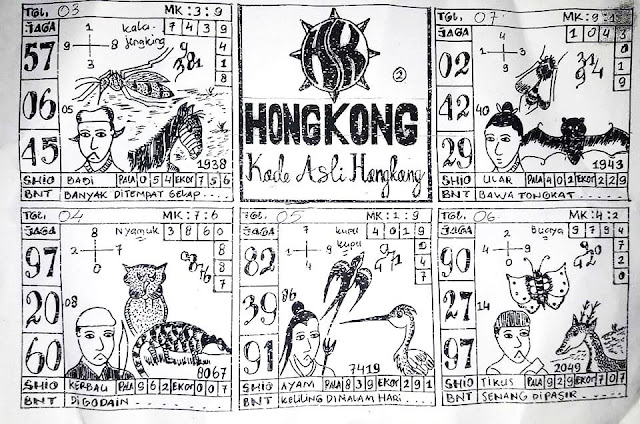 TGL. 03 MK:3:9
JAGA
57
06
45
1
9 8
3
Kala-
Jengking
7 4 3 9
4
1
8
9
381
05
1938
SHIO BABI PALA 0 5 4 EKOR 7 5 6
BNT BANYAK DITEMPAT GELAP
HK
2
HONGKONG
Kode Asli Hongkong
TGL. 07 MK:9:1
JAGA
02
42
29
4
1 3
9
1 0 4 3
0
1
9
40
1943
SHIO ULAR PALA 4 0 1 EKOR 2 2 9
BNT BAWA TONGKAT
TGL. 04 MK:7:6
JAGA
97
20
60
8
2 7
0
Nyamuk
3 8 6 0
8
8
7
08
8067
SHIO KERBAU PALA 9 6 2 EKOR 0 0 7
BNT DIGODAIN
TGL. 05 MK:1:9
JAGA
82
39
91
7
1 4
9
Kupu
Kupu
4 0 1 9
0
8
7
86
7419
SHIO AYAM PALA 8 3 9 EKOR 2 9 1
BNT KELILING DIMALAM HARI
TGL. 06 MK:4:2
JAGA
90
27
97
2
4 9
0
Buaya
9 7 9 4
2
2
0
14
2049
SHIO TIKUS PALA 9 2 9 EKOR 7 0 7
BNT SENANG DIPASIR